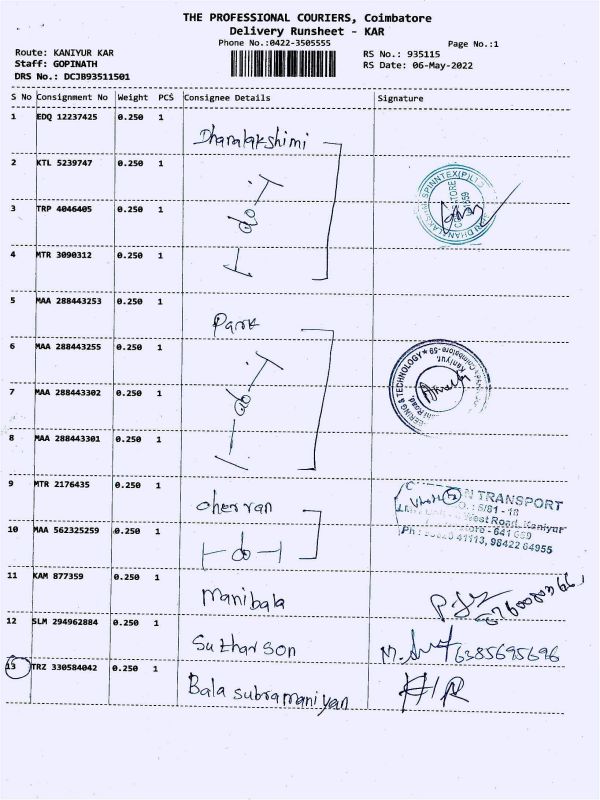 THE PROFESSIONAL COURIERS, Coimbatore
Delivery Runsheet - KAR
Phone No.:0422-3505555
Page No.:1
Route: KANIYUR KAR
RS No.: 935115
Staff: GOPINATH
RS Date: 06-May-2022
DRS No.: DCJB93511501
S No Consignment No Weight PCS Consignee Details Signature
1 EDQ 12237425 0.250 1
Dharalakshimi
2 KTL 5239747 0.250 1
3 TRP 4046405 0.250 1
do
4 MTR 3090312 0.250 1
5 MAA 288443253 0.250 1
Park
6 MAA 288443255 0.250 1
7 MAA 288443302 0.250 1
do
8 MAA 288443301 0.250 1
9 MTR 2176435 0.250 1
cherran
N TRANSPORT
5/81 - 18
West Road, Kaniyur
641 659
41113, 98422 64955
10 MAA 562325259 0.250 1
do
11 KAM 877359 0.250 1
Manibala
12 SLM 294962884 0.250 1
Sutharson
6385695696
13 TRZ 330584042 0.250 1
Bala subramaniyan